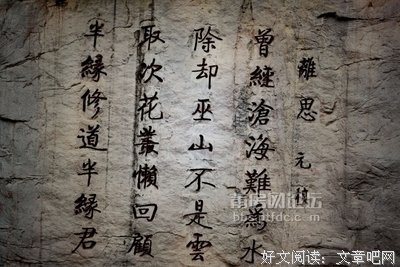 離思 元稹
曾經滄海難為水
除却巫山不是雲
取次花叢懶回顧
半緣修道半緣君
好文阅读：文章吧网